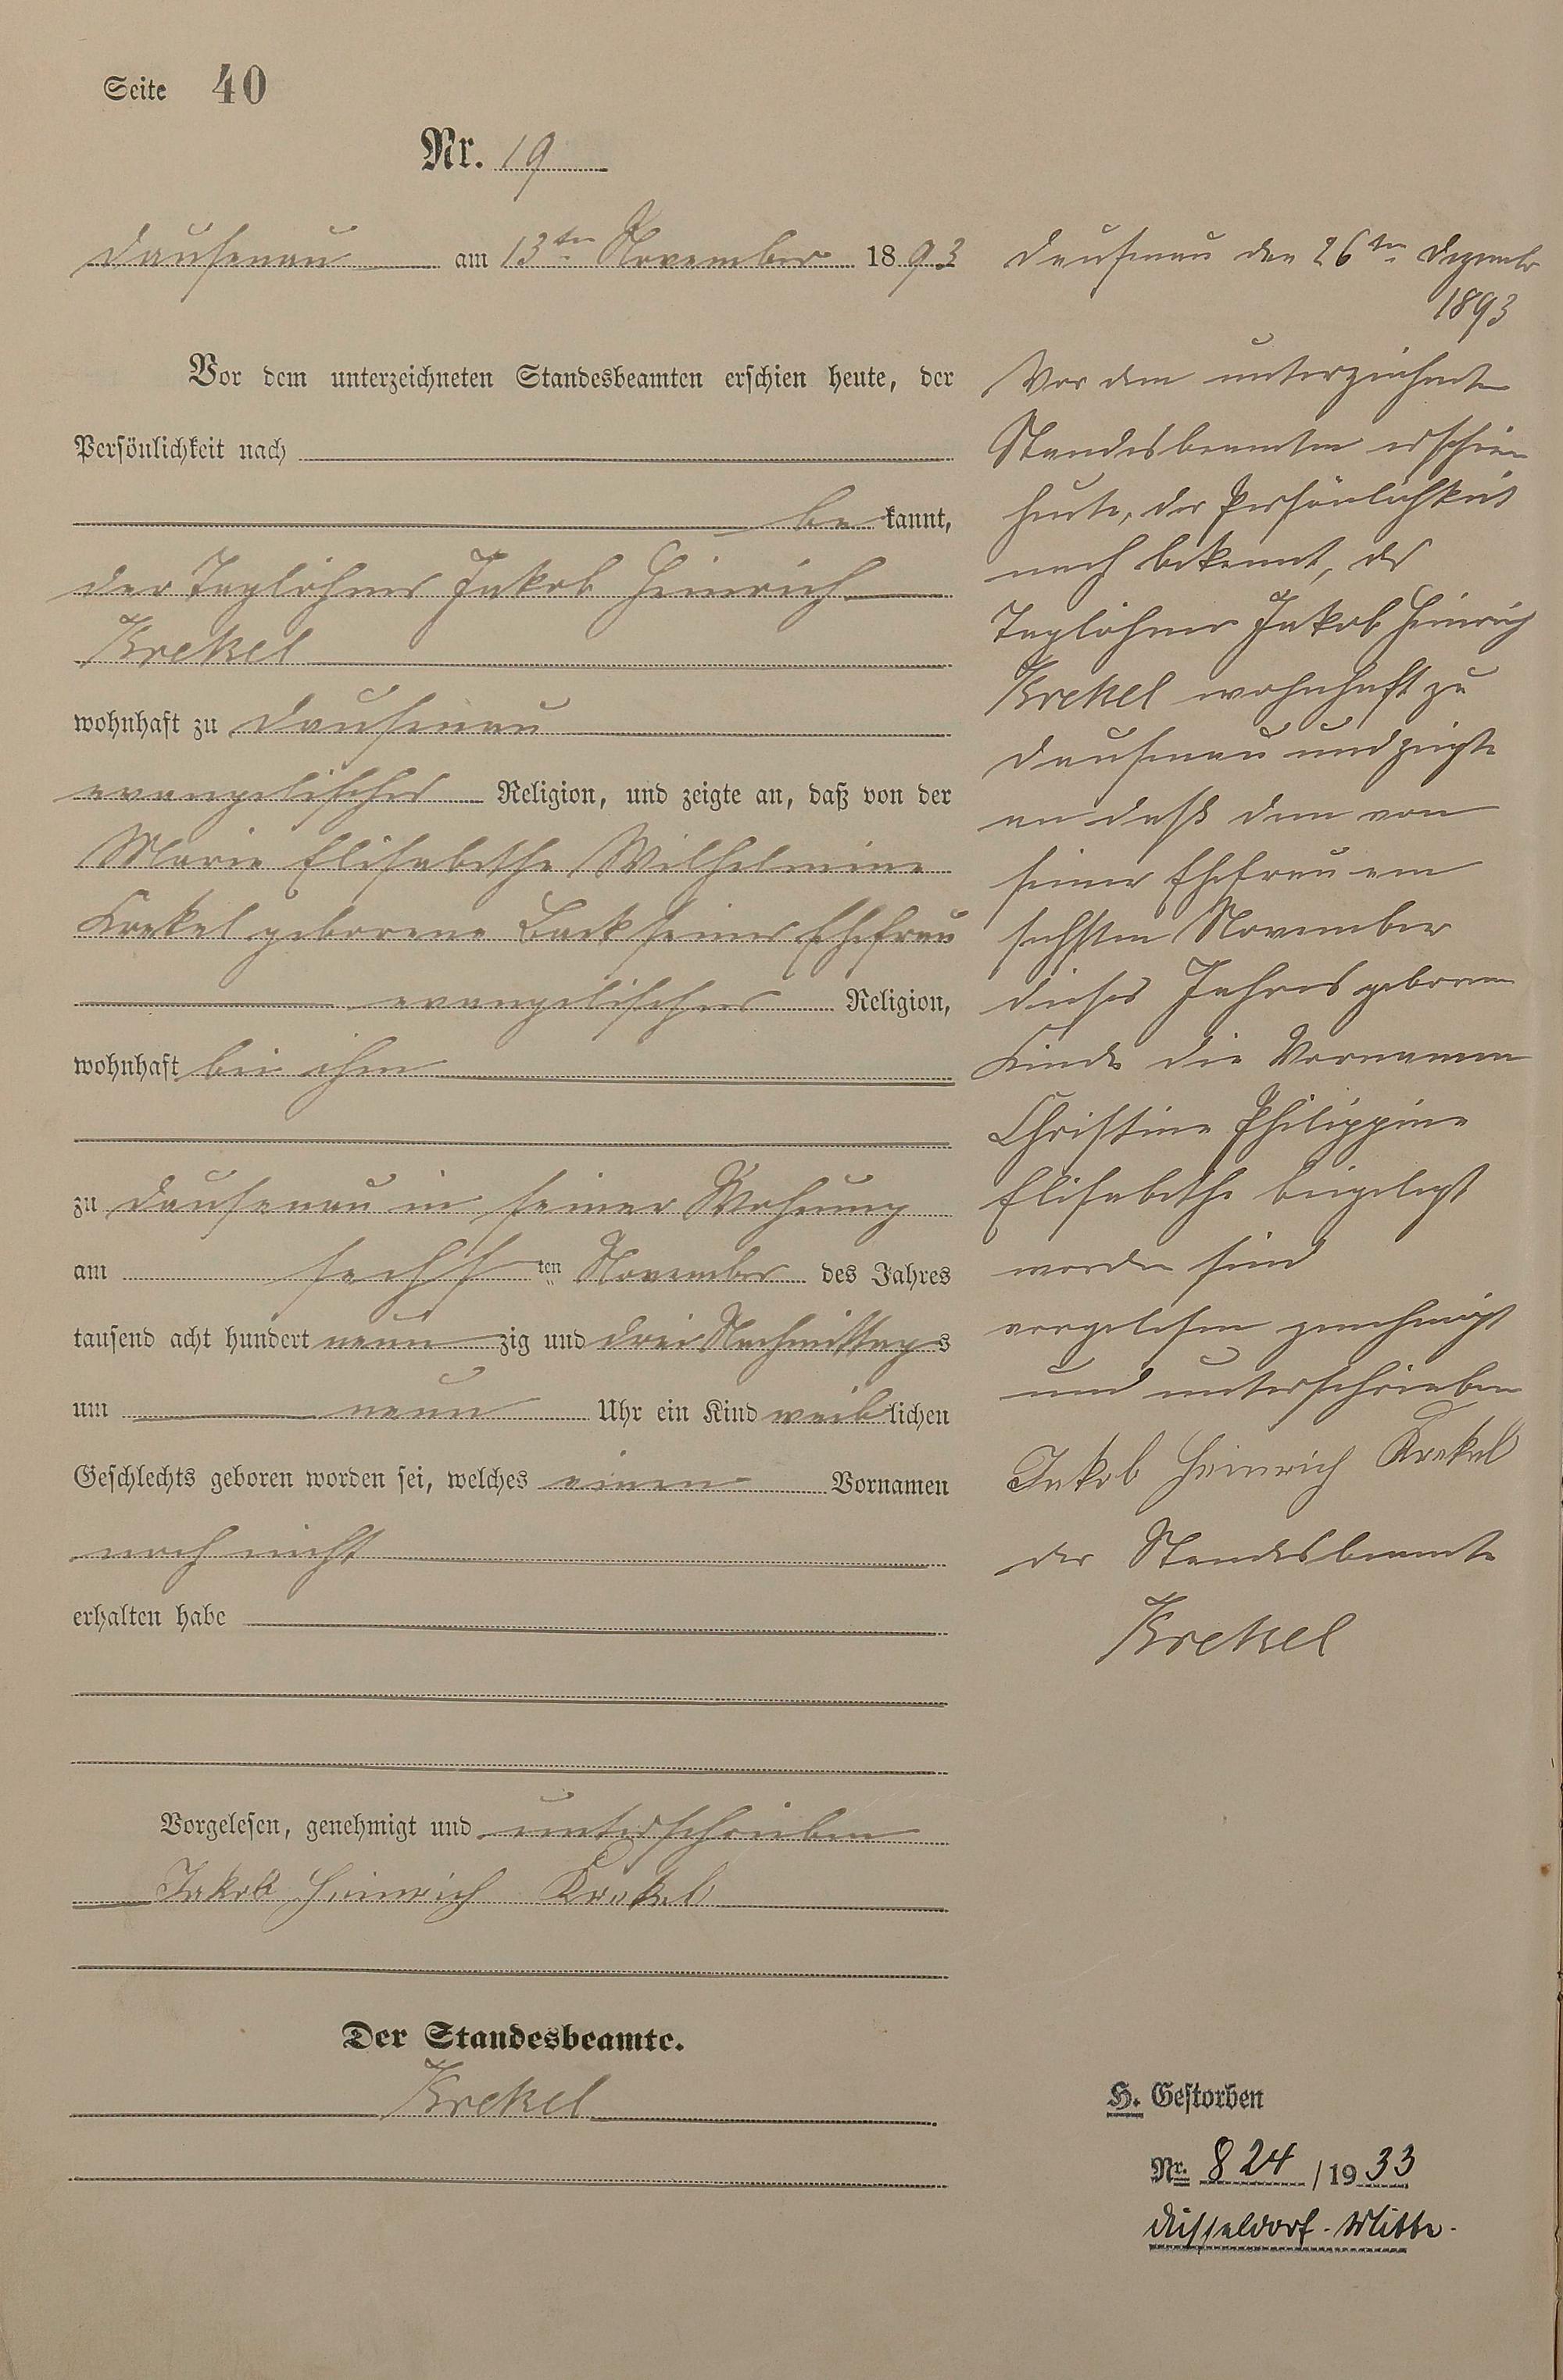 Seite 40
Nr. 19
Dausenau am 13ten November 1893
Vor dem unterzeichneten Standesbeamten erschien heute, der
Persönlichkeit nach
bekannt,
der Taglöhner Jakob Heinrich
Krekel
wohnhaft zu Dausenau
evangelischer Religion, und zeigte an, daß von der
Marie Elisabethe Wilhelmine
Krekel geborene Back seiner Ehefrau
evangelischer Religion,
wohnhaft bei ihm
zu Dausenau in seiner Wohnung
am sechsten November des Jahres
tausend acht hundert neunzig und drei Nachmittags
um neun Uhr ein Kind weiblichen
Geschlechts geboren worden sei, welches einen Vornamen
noch nicht
erhalten habe
Vorgelesen, genehmigt und unterschrieben
Jakob Heinrich Krekel
Der Standesbeamte.
Krekel
Dausenau den 26ten Dezember
1893
Vor dem unterzeichneten
Standesbeamten erschien
heute, der Persönlichkeit
nach bekannt, der
Taglöhner Jakob Heinrich
Krekel wohnhaft zu
Dausenau und zeigte
an daß dem von
seiner Ehefrau am
sechsten November
dieses Jahres geborenen
Kinde die Vornamen
Christine Philippine
Elisabethe beigelegt
worden sind
vorgelesen genehmigt
und unterschrieben
Jakob Heinrich Krekel
der Standesbeamte
Krekel
H. Gestorben
Nr. 824/1933
Düsseldorf-Mitte.